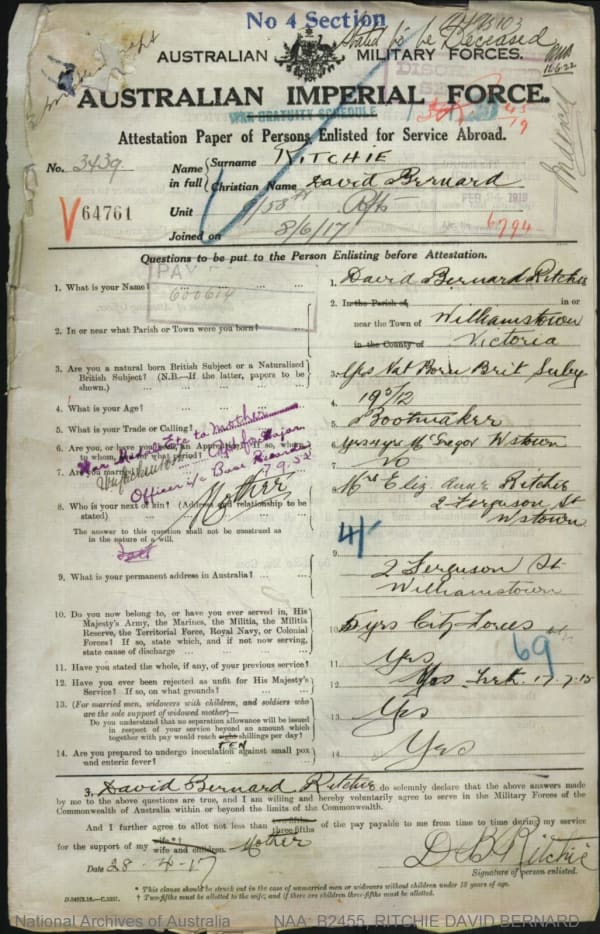 No 4 Section
Stated to be Deceased
AUSTRALIAN MILITARY FORCES.
AUSTRALIAN IMPERIAL FORCE.
WAR GRATUITY SCHEDULE
Attestation Paper of Persons Enlisted for Service Abroad.
No. 3439
Name in full { Surname RITCHIE
Christian Name David Bernard
V 64761
Unit 9/58th Bn
Joined on 8/6/17
FEB 1918
6794
Questions to be put to the Person Enlisting before Attestation.
PAY
600614
1. What is your Name? ... ... 1. David Bernard Ritchie
2. In or near what Parish or Town were you born? 2. In the Parish of in or
near the Town of Williamstown
in the County of Victoria
3. Are you a natural born British Subject or a Naturalized British Subject? (N.B.—If the latter, papers to be shown.) 3. Yes Nat Born Brit Subj
4. What is your Age? 4. 19 5/12
5. What is your Trade or Calling? 5. Bootmaker
6. Are you, or have you been, an Apprentice? If so, where, to whom, and for what period? 6. Yes 4 yrs McGregor Wstown
7. Are you married? 7. No
War Medals Etc to Mother
Officer i/c Base Records
Mother
8. Who is your next of kin? (Address and relationship to be stated) 8. Mrs Eliz. Anne Ritchie
2 Ferguson St
Wstown
The answer to this question shall not be construed as in the nature of a will.
9. What is your permanent address in Australia? 9. 2 Ferguson St
Williamstown
10. Do you now belong to, or have you ever served in, His Majesty's Army, the Marines, the Militia, the Militia Reserve, the Territorial Force, Royal Navy, or Colonial Forces? If so, state which, and if not now serving, state cause of discharge 10. 5 yrs Citz Forces
69
11. Have you stated the whole, if any, of your previous service? 11. Yes
12. Have you ever been rejected as unfit for His Majesty's Service? If so, on what grounds? 12. Yes
13. (For married men, widowers with children, and soldiers who are the sole support of widowed mother)—
Do you understand that no separation allowance will be issued in respect of your service beyond an amount which together with pay would reach eight TEN shillings per day? 13. Yes
14. Are you prepared to undergo inoculation against small pox and enteric fever? 14. Yes
3. David Bernard Ritchie do solemnly declare that the above answers made
by me to the above questions are true, and I am willing and hereby voluntarily agree to serve in the Military Forces of the
Commonwealth of Australia within or beyond the limits of the Commonwealth.
And I further agree to allot not less than two-fifths three-fifths of the pay payable to me from time to time during my service
for the support of my wife wife and children. Mother
Date 28-4-17
D B Ritchie
Signature of person enlisted.
* This clause should be struck out in the case of unmarried men or widowers without children under 18 years of age.
† Two-fifths must be allotted to the wife; and if there are children three-fifths must be allotted.
National Archives of Australia NAA: B2455, RITCHIE DAVID BERNARD